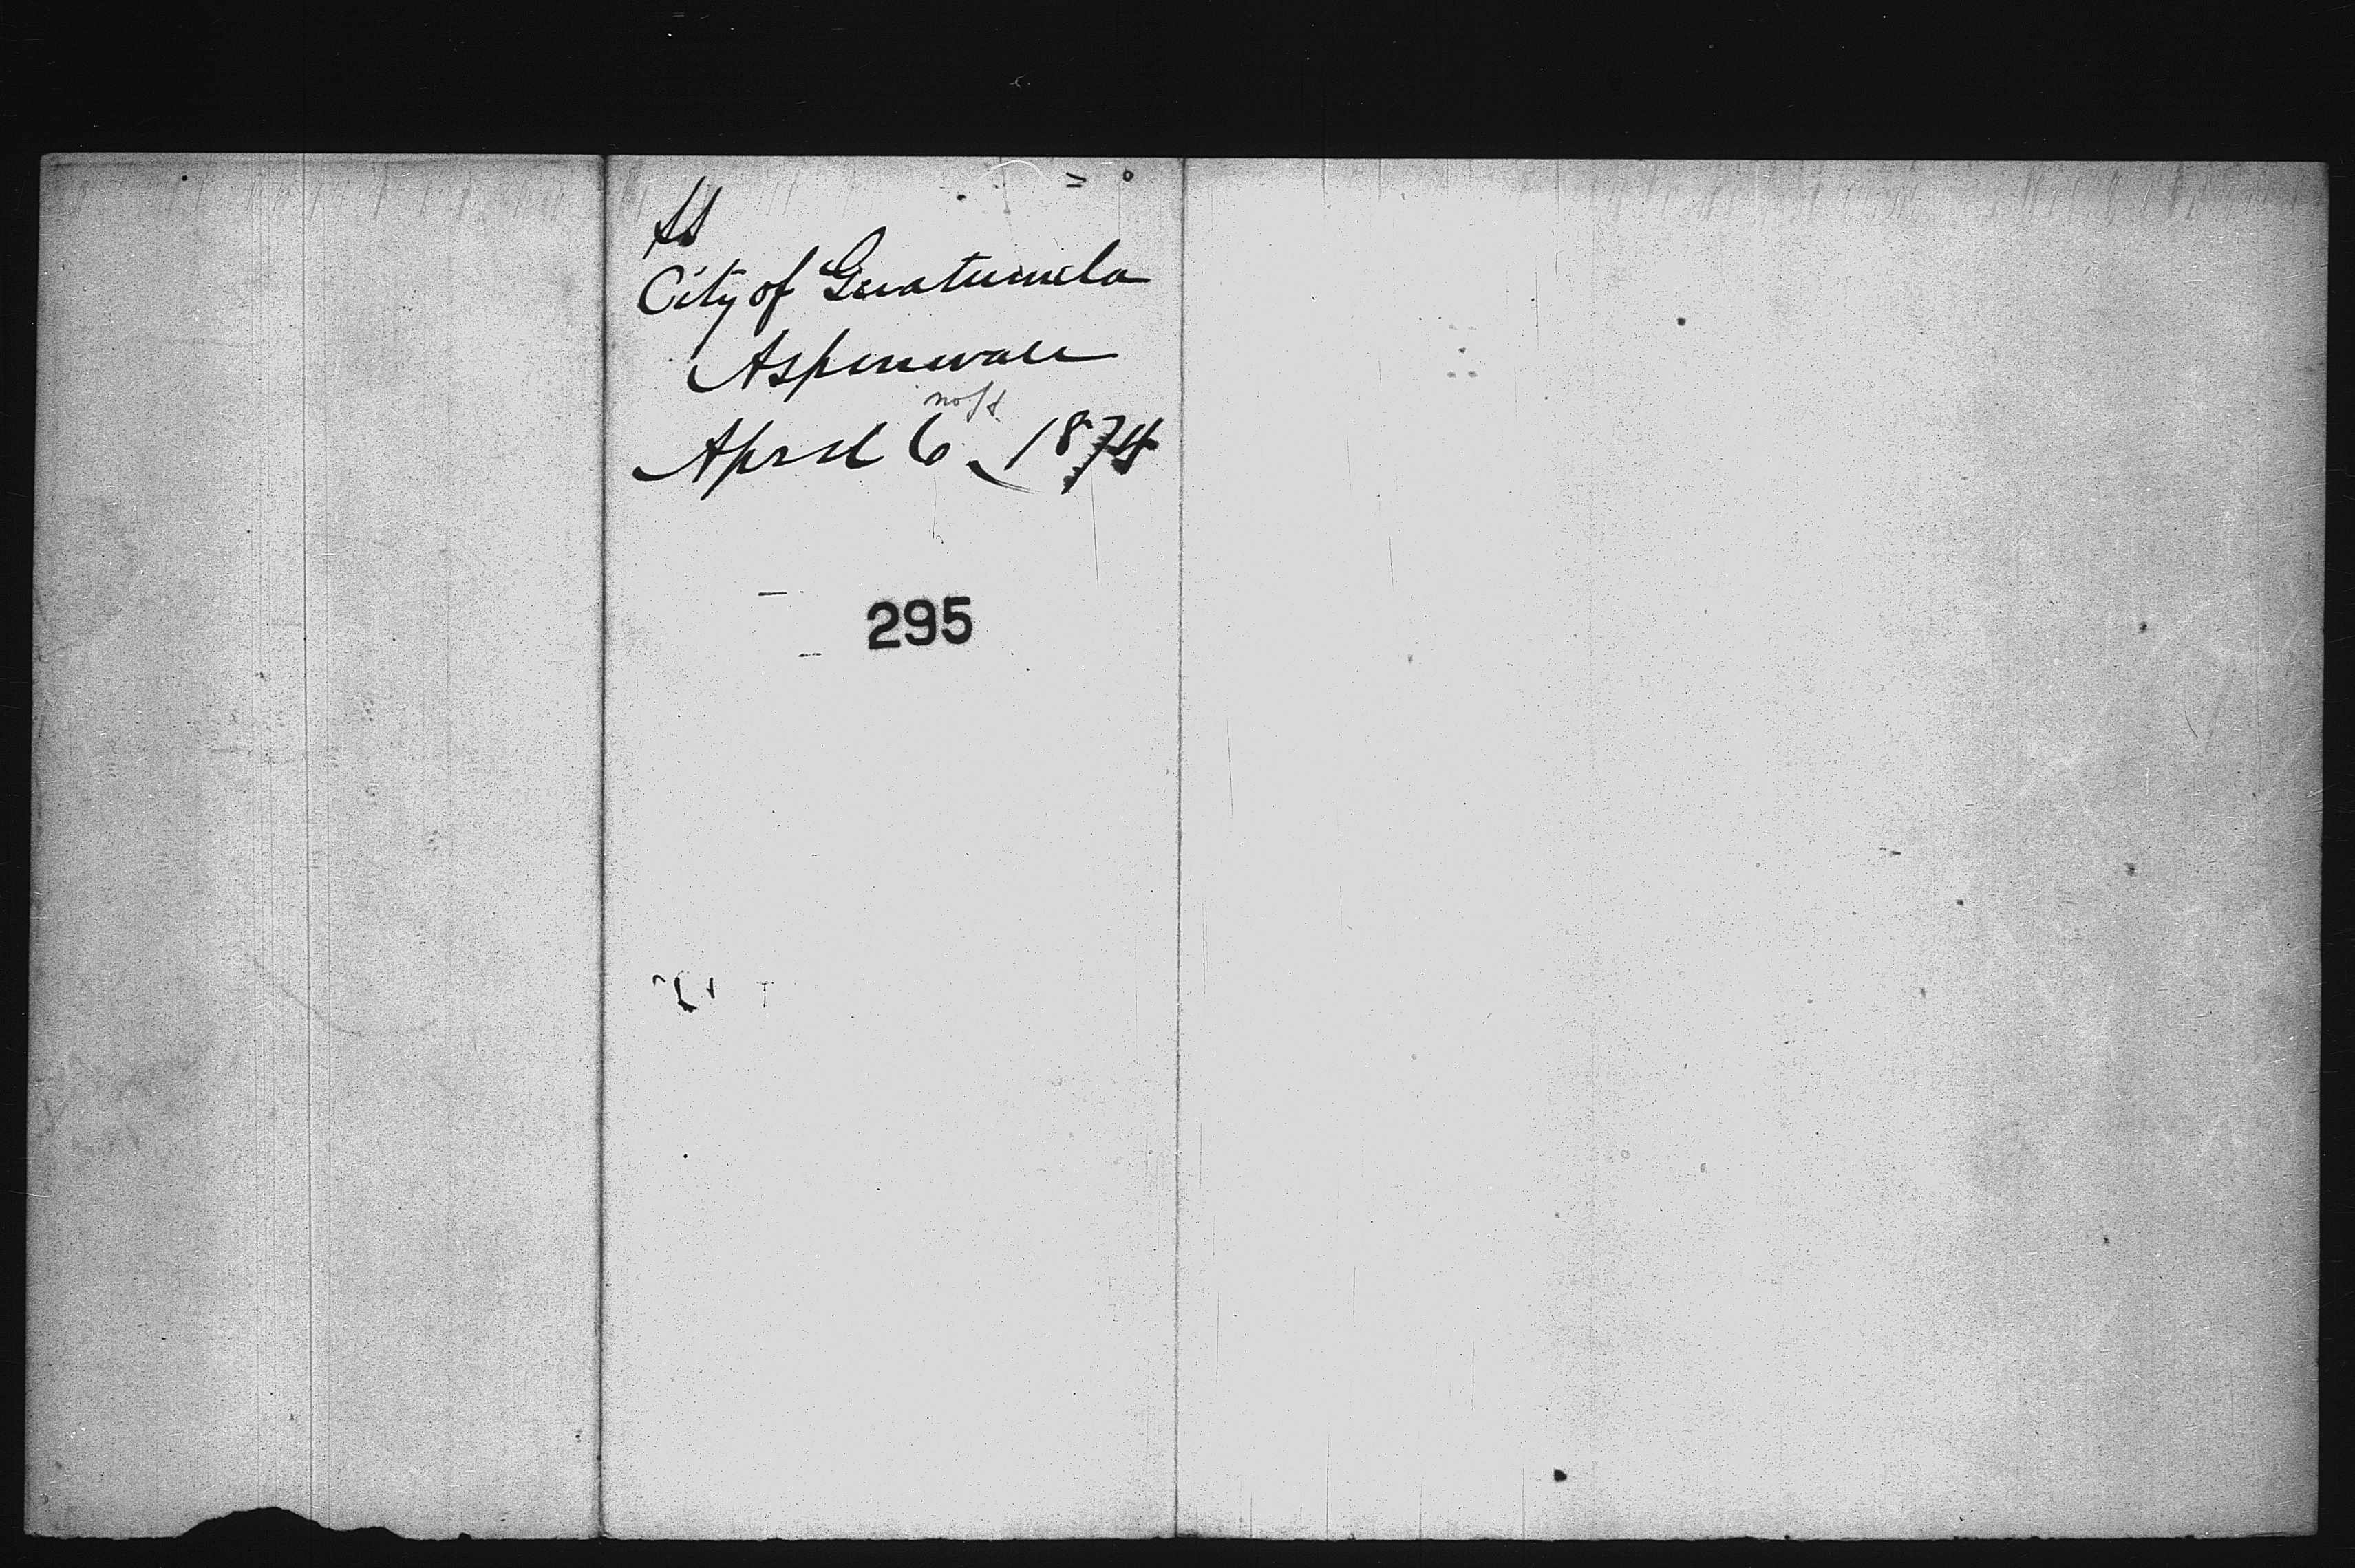 SS
City of Guatemala
Aspinwall
April 6, 1874
295